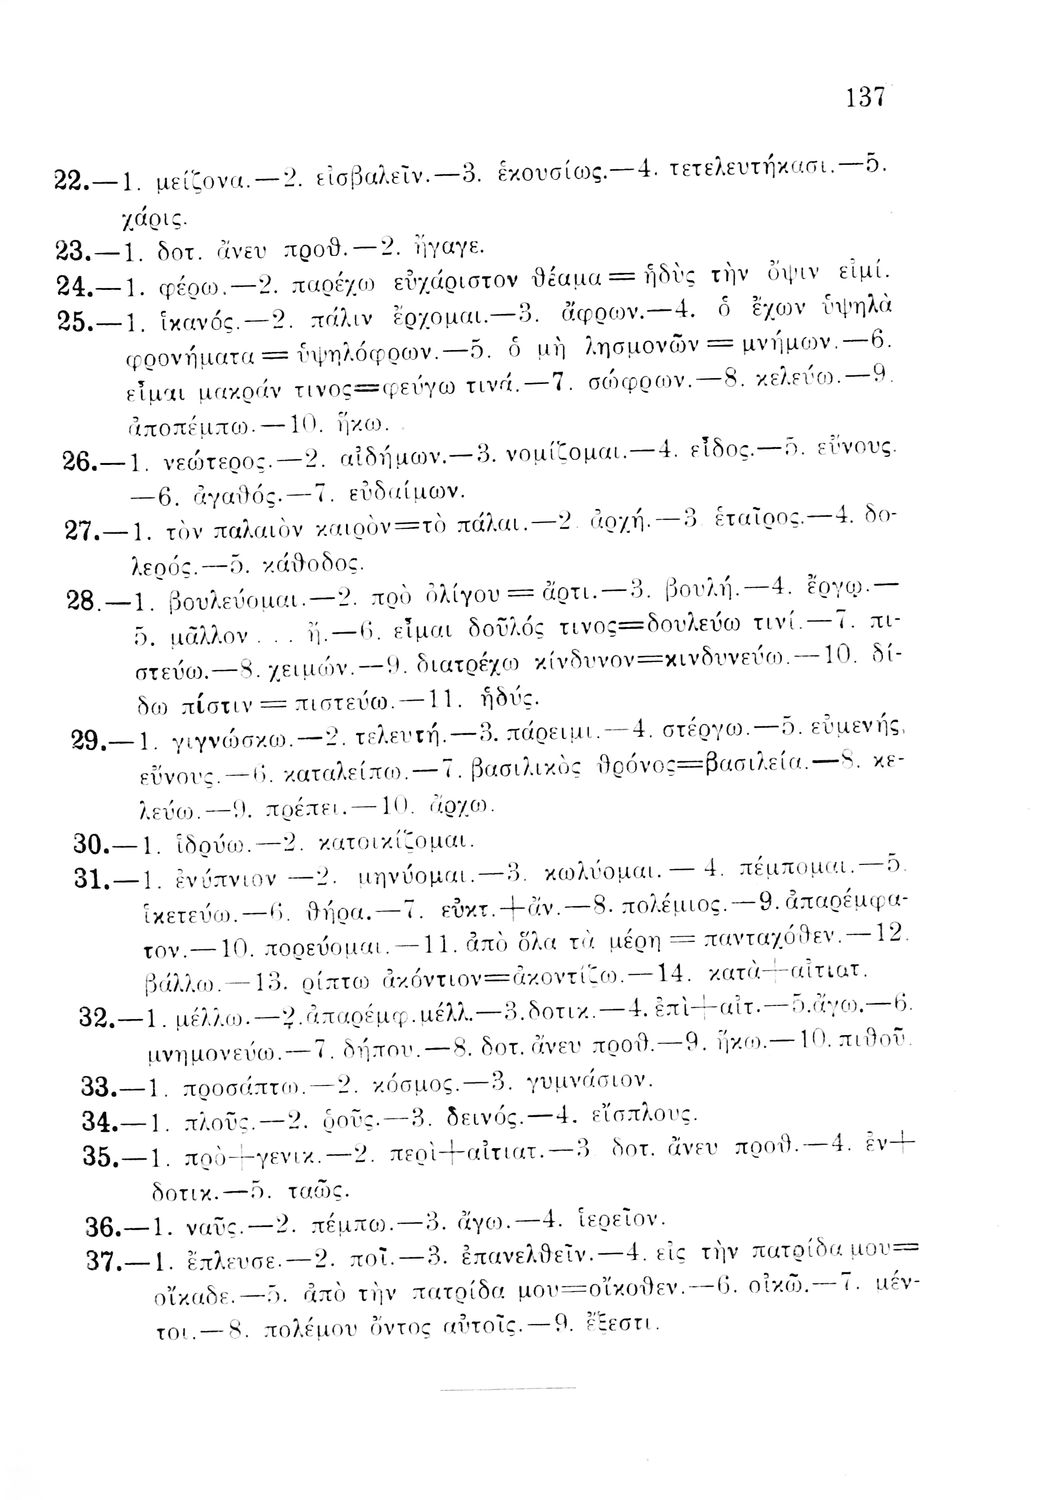 137
22.—1. μείζονα.—2. εἰσβαλεῖν.—3. ἑκουσίως.—4. τετελευτήκασι.—5.
χάρις.
23.—1. δοτ. ἄνευ προθ.—2. ἤγαγε.
24.—1. φέρω.—2. παρέχω εὐχάριστον θέαμα = ἡδὺς τὴν ὄψιν εἰμί.
25.—1. ἱκανός.—2. πάλιν ἔρχομαι.—3. ἄφρων.—4. ὁ ἔχων ὑψηλὰ
φρονήματα = ὑψηλόφρων.—5. ὁ μὴ λησμονῶν = μνήμων.—6.
εἶμαι μακρὰν τινος=φεύγω τινά.—7. σώφρων.—8. κελεύω.—9.
ἀποπέμπω.—10. ἥκω.
26.—1. νεώτερος.—2. αἰδήμων.—3. νομίζομαι.—4. εἶδος.—5. εὔνους.
—6. ἀγαθός.—7. εὐδαίμων.
27.—1. τὸν παλαιὸν καιρὸν=τὸ πάλαι.—2 ἀρχή.—3 ἑταῖρος.—4. δο-
λερός.—5. κάθοδος.
28.—1. βουλεύομαι.—2. πρὸ ὀλίγου = ἄρτι.—3. βουλή.—4. ἔργῳ.—
5. μᾶλλον . . . ἤ.—6. εἶμαι δοῦλός τινος=δουλεύω τινί.—7. πι-
στεύω.—8. χειμών.—9. διατρέχω κίνδυνον=κινδυνεύω.—10. δί-
δω πίστιν = πιστεύω.—11. ἡδύς.
29.—1. γιγνώσκω.—2. τελευτή.—3. πάρειμι.—4. στέργω.—5. εὐμενής,
εὔνους.—6. καταλείπω.—7. βασιλικὸς θρόνος=βασιλεία.—8. κε-
λεύω.—9. πρέπει.—10. ἄρχω.
30.—1. ἱδρύω.—2. κατοικίζομαι.
31.—1. ἐνύπνιον —2. μηνύομαι.—3. κωλύομαι.— 4. πέμπομαι.—5.
ἱκετεύω.—6. θήρα.—7. εὐκτ.+ἄν.—8. πολέμιος.—9. ἀπαρέμφα-
τον.—10. πορεύομαι.—11. ἀπὸ ὅλα τὰ μέρη = πανταχόθεν.—12.
βάλλω.—13. ρίπτω ἀκόντιον=ἀκοντίζω.—14. κατὰ+αἰτιατ.
32.—1. μέλλω.—2. ἀπαρέμφ. μέλλ.—3. δοτικ.—4. ἐπὶ+αἰτ.—5. ἄγω.—6.
μνημονεύω.—7. δήπου.—8. δοτ. ἄνευ προθ.—9. ἥκω.—10. πιθοῦ.
33.—1. προσάπτω.—2. κόσμος.—3. γυμνάσιον.
34.—1. πλοῦς.—2. ῥοῦς.—3. δεινός.—4. εἴσπλους.
35.—1. πρὸ+γενικ.—2. περὶ+αἰτιατ.—3 δοτ. ἄνευ προθ.—4. ἐν+
δοτικ.—5. ταῶς.
36.—1. ναῦς.—2. πέμπω.—3. ἄγω.—4. ἱερεῖον.
37.—1. ἔπλευσε.—2. ποῖ.—3. ἐπανελθεῖν.—4. εἰς τὴν πατρίδα μου=
οἴκαδε.—5. ἀπὸ τὴν πατρίδα μου=οἴκοθεν.—6. οἰκῶ.—7. μέν-
τοι.—8. πολέμου ὄντος αὐτοῖς.—9. ἔξεστι.